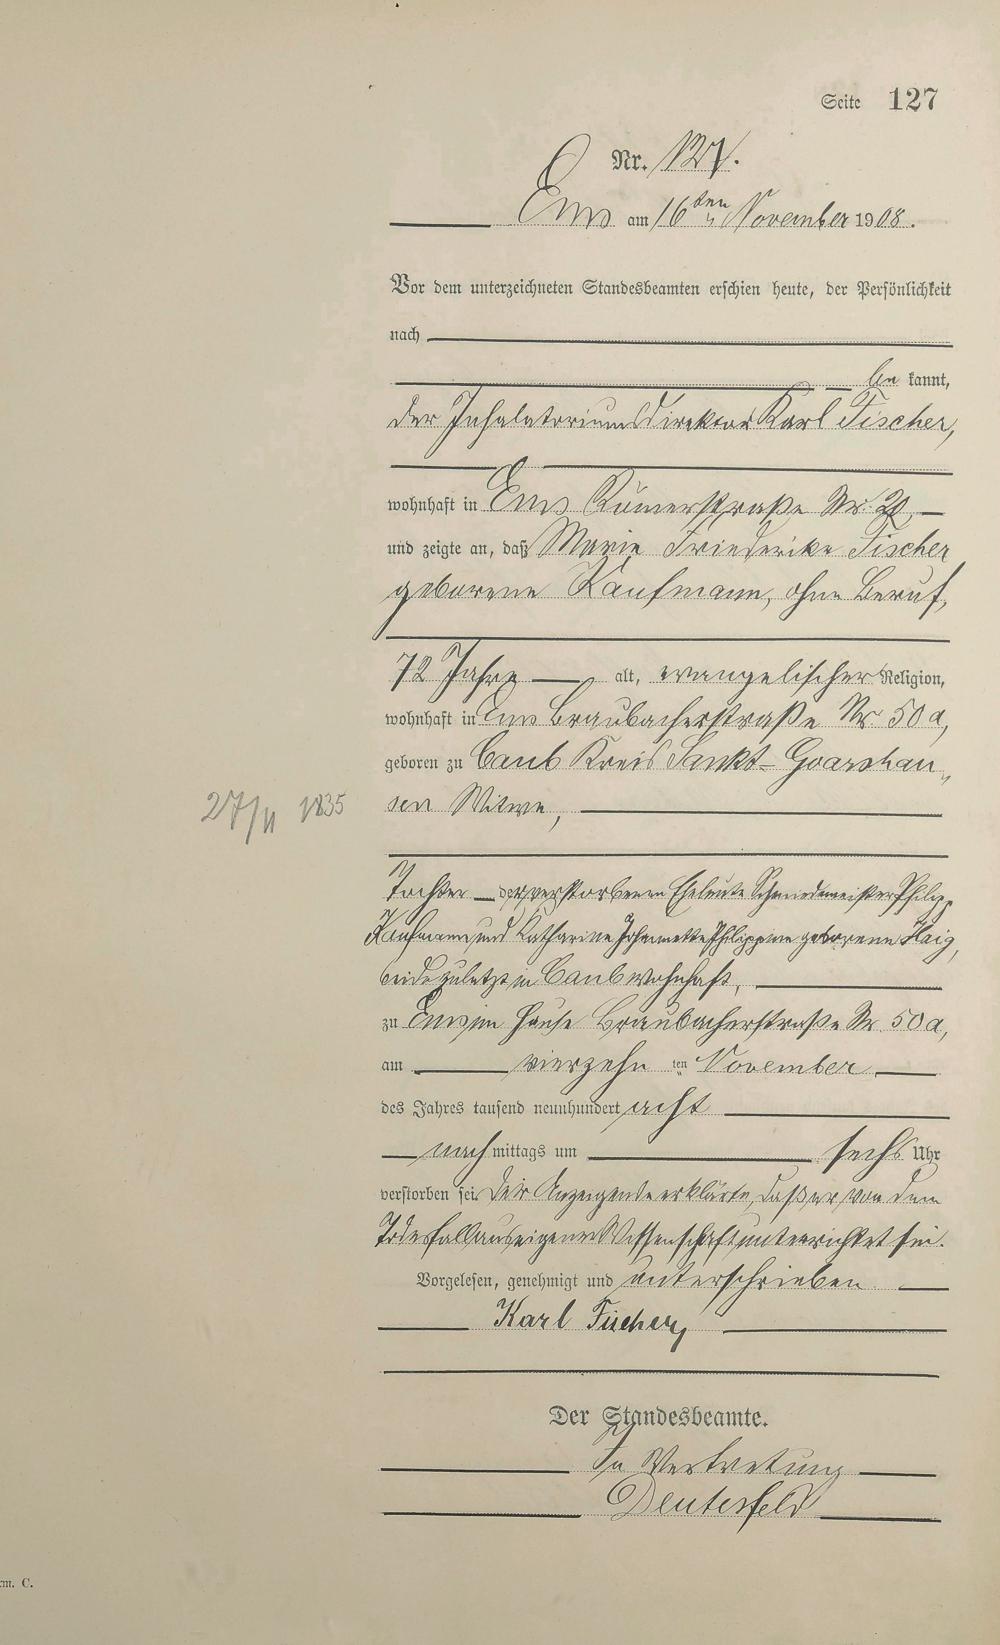 Seite 127
Nr. 127.
Ems am 16ten November 1908.
Vor dem unterzeichneten Standesbeamten erschien heute, der Persönlichkeit
nach
be kannt,
der Inhalatoriumsdirektor Karl Fischer,
wohnhaft in Ems Römerstraße Nr. 20
und zeigte an, daß Marie Friederike Fischer
geborene Kaufmann, ohne Beruf,
72 Jahre alt, evangelischer Religion,
wohnhaft in Ems Braubacherstraße Nr. 50a,
geboren zu Caub Kreis Sankt-Goarshau„
27/11 1835 sen Witwe,
Tochter der verstorbenen Eheleute Schmiedemeister Philipp
Kaufmann und Katharine Johannette Philippine geborene Haig,
beide zuletzt in Caub wohnhaft,
zu Ems im Hause Braubacherstraße Nr. 50a,
am vierzehn ten November
des Jahres tausend neunhundert acht
nach mittags um sechs Uhr
verstorben sei. Der Anzeigende erklärte, daß er von dem
Todesfall aus eigener Wissenschaft unterrichtet sei.
Vorgelesen, genehmigt und unterschrieben
Karl Fischer,
Der Standesbeamte.
In Vertretung
Deutesfeld
rm. C.